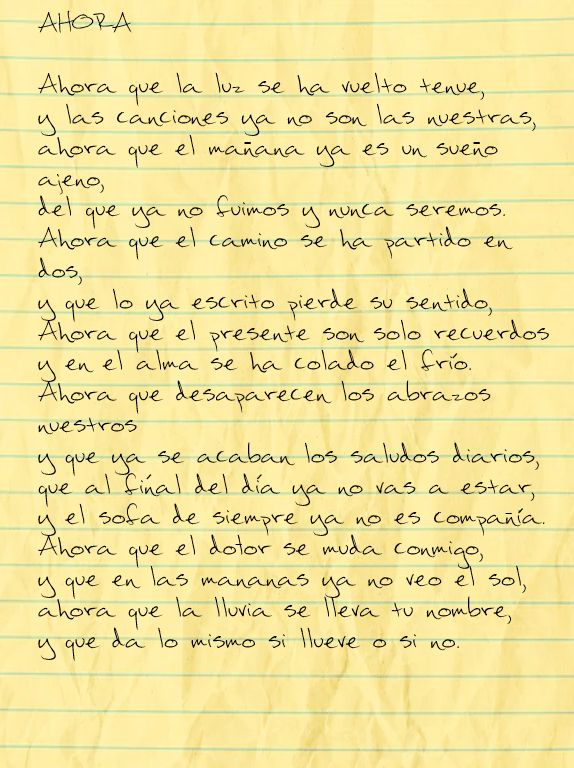 AHORA
Ahora que la luz se ha vuelto tenue,
y las canciones ya no son las nuestras,
ahora que el mañana ya es un sueño
ajeno,
del que ya no fuimos y nunca seremos.
Ahora que el camino se ha partido en
dos,
y que lo ya escrito pierde su sentido,
Ahora que el presente son solo recuerdos
y en el alma se ha colado el frío.
Ahora que desaparecen los abrazos
nuestros
y que ya se acaban los saludos diarios,
que al fiñal del día ya no vas a estar,
y el sofa de siempre ya no es compañía.
Ahora que el dotor se muda conmigo,
y que en las mananas ya no veo el sol,
ahora que la lluvia se lleva tu nombre,
y que da lo mismo si llueve o si no.